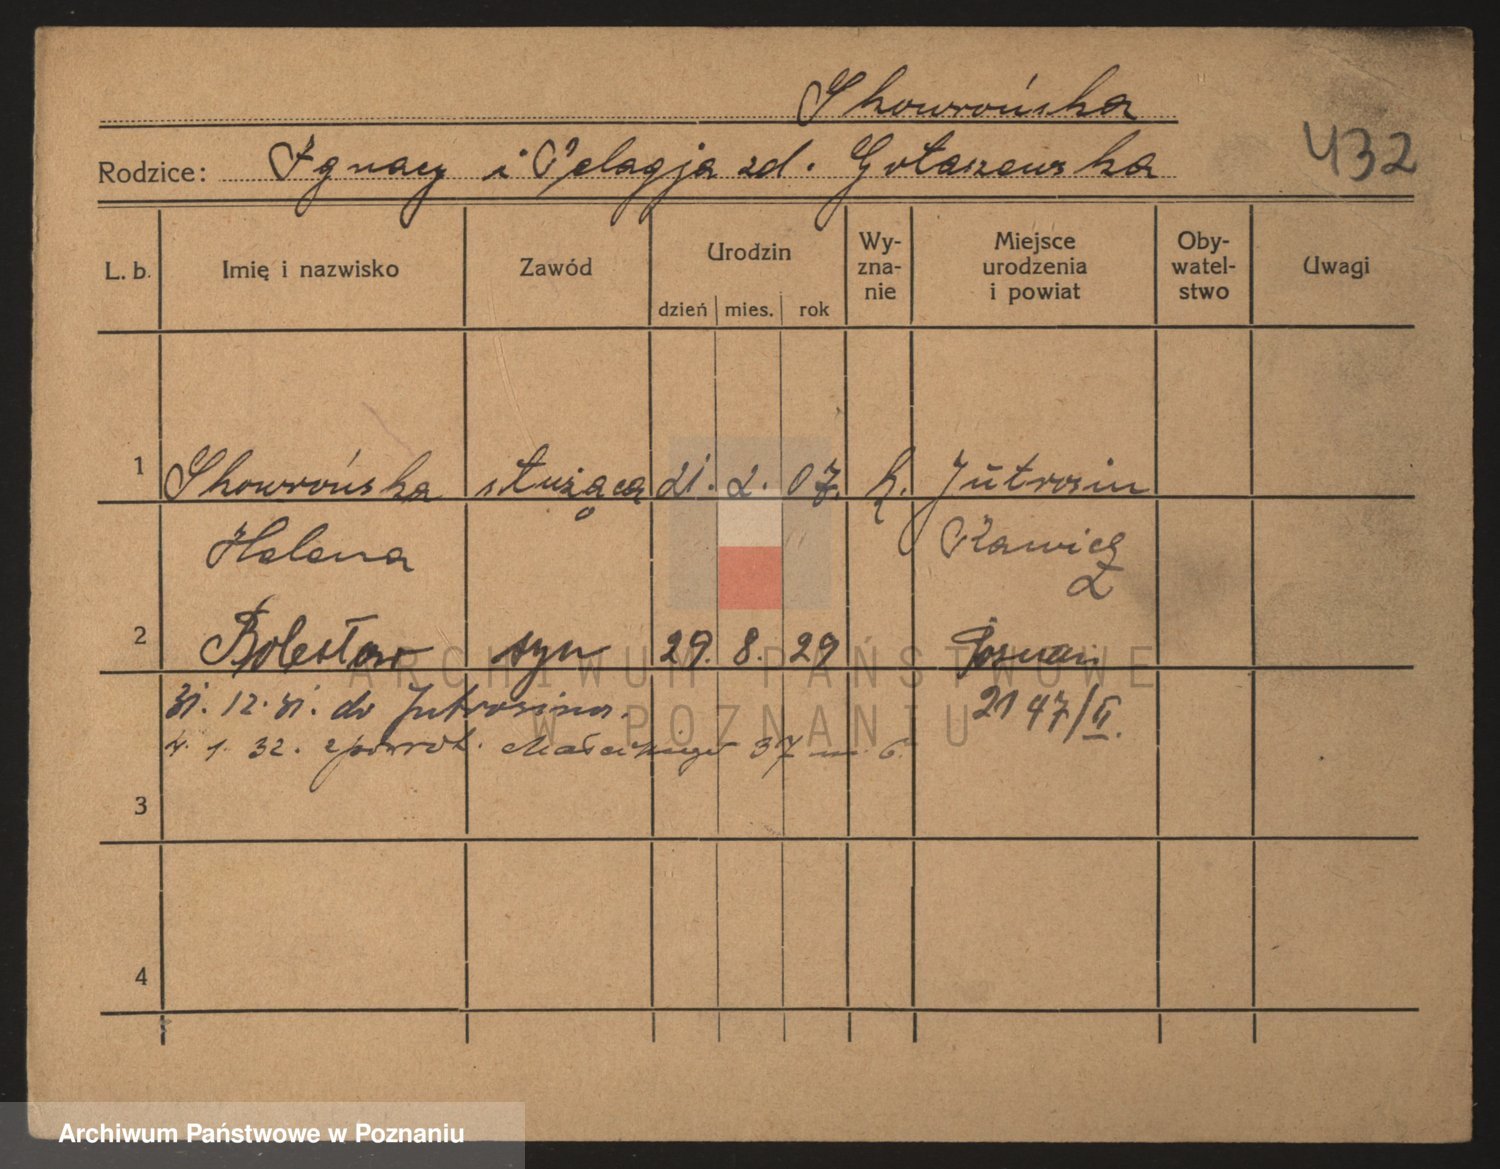 Skowrońska
432
Rodzice: Ignacy i Pelagja zd. Gołaszewska
L. b. Imię i nazwisko Zawód Urodzin dzień mies. rok Wy-zna-nie Miejsce urodzenia i powiat Oby-watel-stwo Uwagi
1 Skowrońska służąca 21. 2. 07. k. Jutrosin
Helena Rawicz
2 Bolesław syn 29. 8. 29 Poznań
31. 12. 31. do Jutrosina. 2147/II.
4. 1. 32. zpowrot. 37 m 6.
3
4
ARCHIWUM PAŃSTWOWE
W POZNANIU
Archiwum Państwowe w Poznaniu